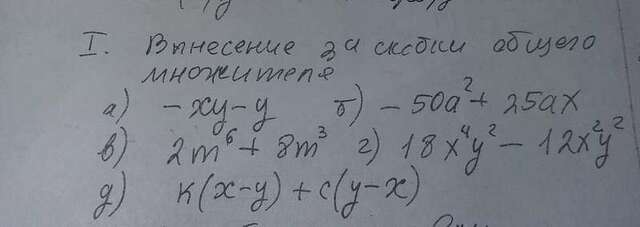 I. Вынесение за скобки общего
множителя
а) -xy-y б) -50a²+ 25ax
в) 2m⁶+ 8m³ г) 18x⁴y² - 12x²y²
д) к(x-y)+c(y-x)